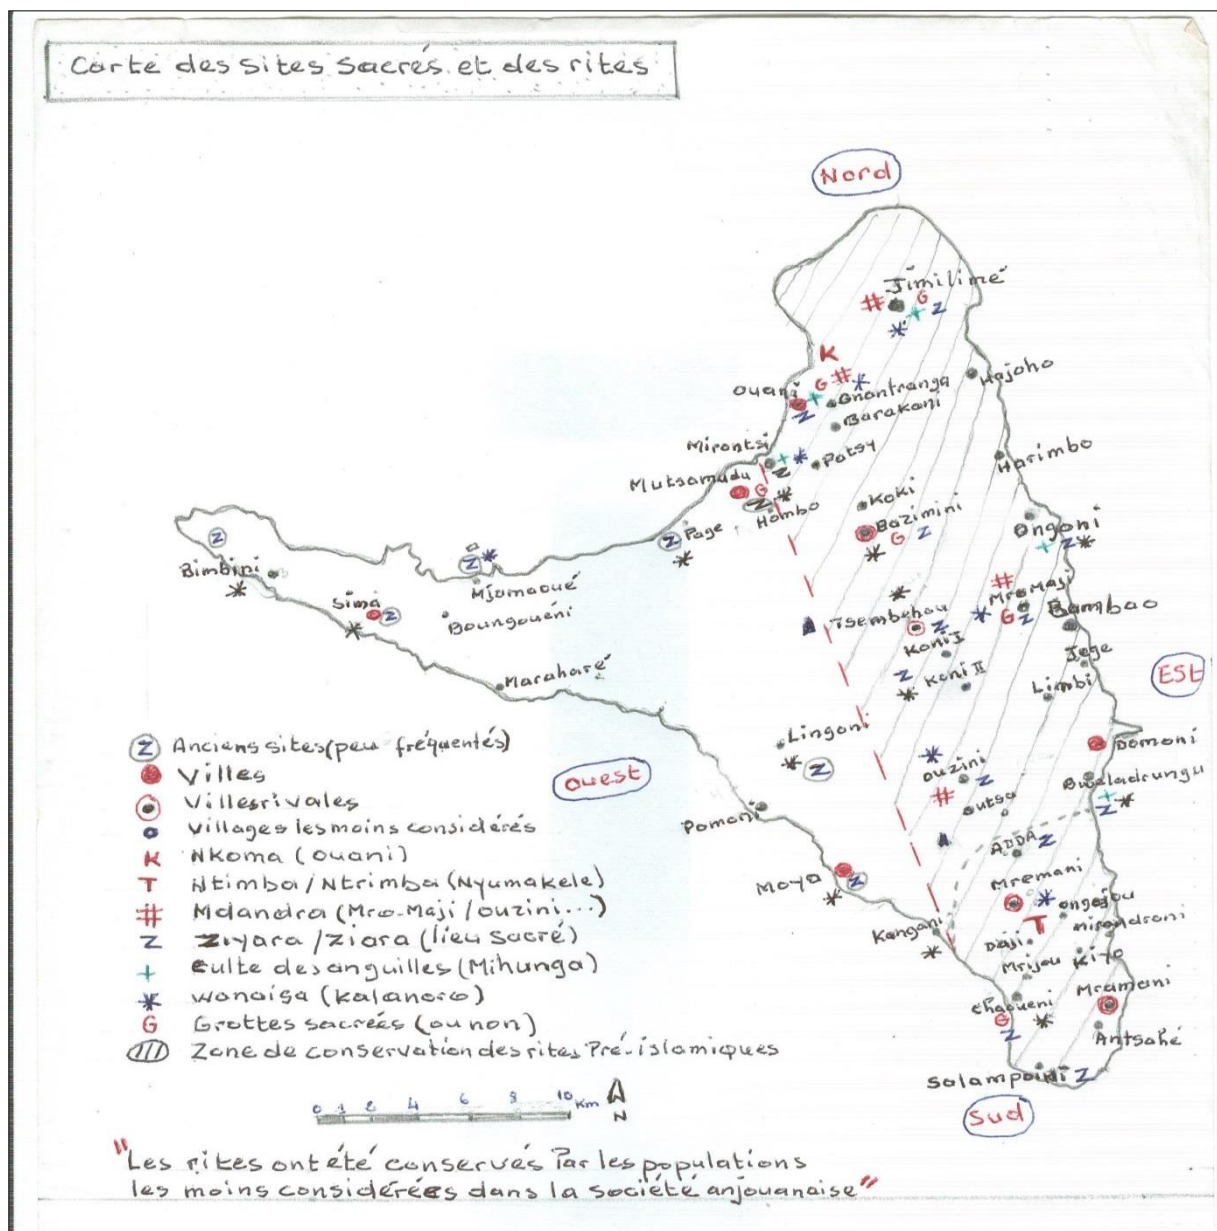 Carte des sites sacrés et des rites
Nord
Jimilimé
# G + Z *
K
G # *
Ouani
+ Gnantranga
Z Barakani
Hajoho
Mirontsi
+ * Patsy
Z
Harimbo
Mutsamudu G *
Z Hombo
Koki
Page
Z
*
Bazimini
G Z
*
Ongoni
+ Z *
Z
Bimbini
*
Z *
Mjamaoué
Sima Z
*
Boungouéni
*
Tsembehou
Z
#
Mro Maji
* G Z
Bambao
Koni I
Z Koni II
*
Jege
Limbi
Est
Maraharé
Lingoni
* Z
Domoni
*
Ouzini
Z
#
Outsa
Bweladrungu
+ *
Z
Ouest
Pomoni
ADDA Z
Moya Z
*
Mremani
* Ongojou
T
Nirondroni
Kangani
*
Daji
Mrijou Kiyo
Chaoueni
G *
Z
Mramani
Antsahé
Solampoini Z
Sud
Z Anciens sites (peu fréquentés)
Villes
Villes rivales
Villages les moins considérés
K Nkoma (Ouani)
T Ntimba/Ntrimba (Nyumakele)
# Mdandra (Mro-Maji/ouzini...)
Z Ziyara/ziara (lieu sacré)
+ Culte des anguilles (Mihunga)
* Wanaisa (Kalanoro)
G Grottes sacrées (ou non)
Zone de conservation des rites Pré-islamiques
0 1 2 4 6 8 10 Km
N
"Les rites ont été conservés Par les populations
les moins considérées dans la société anjouanaise"